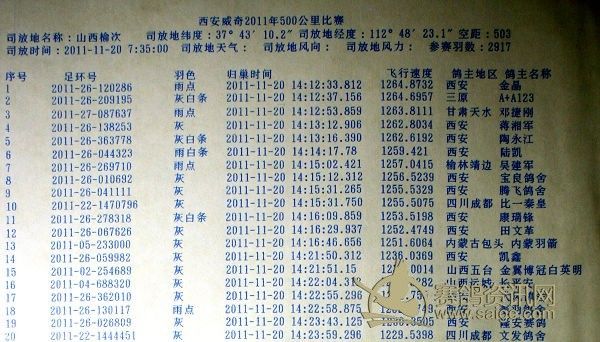 西安威奇2011年500公里比赛
司放地名称：山西榆次 司放地纬度：37° 43′ 10.2″ 司放地经度：112° 48′ 23.1″ 空距：503
司放时间：2011-11-20 7:35:00 司放地天气： 司放地风向： 司放地风力： 参赛羽数：2917
序号 足环号 羽色 归巢时间 飞行速度 鸽主地区 鸽主名称
1 2011-26-120286 雨点 2011-11-20 14:12:33.812 1264.8732 西安 金晶
2 2011-26-209195 灰白条 2011-11-20 14:12:37.156 1264.6957 三原 A+A123
3 2011-27-087637 雨点 2011-11-20 14:12:53.859 1263.8111 甘肃天水 邓捷刚
4 2011-26-138253 灰 2011-11-20 14:13:12.906 1262.8034 西安 蒋湘军
5 2011-26-363778 灰白条 2011-11-20 14:13:16.390 1262.6192 西安 陶永江
6 2011-26-044323 雨白条 2011-11-20 14:14:17.78 1259.421 西安 陆凯
7 2011-26-269710 雨点 2011-11-20 14:15:02.421 1257.0415 榆林靖边 吴建军
8 2011-26-010692 灰 2011-11-20 14:15:12.313 1256.5239 西安 宝良鸽舍
9 2011-26-041111 灰 2011-11-20 14:15:31.265 1255.5329 西安 腾飞鸽舍
10 2011-22-1470796 灰 2011-11-20 14:15:31.905 1255.5005 四川成都 比一泰皇
11 2011-26-278318 灰白条 2011-11-20 14:16:09.859 1253.5198 西安 康瑞锋
12 2011-26-067626 灰 2011-11-20 14:16:29.948 1252.474 西安 田文革
13 2011-05-233000 灰 2011-11-20 14:16:46.656 1251.6064 内蒙古包头 内蒙羽箭
14 2011-26-059982 灰 2011-11-20 14:21:50.312 1236.0369 西安 凯鑫
15 2011-02-254689 灰 2011-11-20 14:21:51.15 .0014 山西五台 金翼博冠白英明
16 2011-04-688320 灰 2011-11-20 14:22:04.218 山西运城 长平安
17 2011-26-362010 灰 2011-11-20 14:22:55.296 西安
18 2011-26-130117 雨点 2011-11-20 14:22:58.875 西安
19 2011-26-026809 灰 2011-11-20 14:23:43.125 西安 隆安赛鸽
20 2011-22-1444451 灰 2011-11-20 14:23:59.296 1229.5398 四川成都 文发鸽舍
赛鸽资讯网
www.saige.com